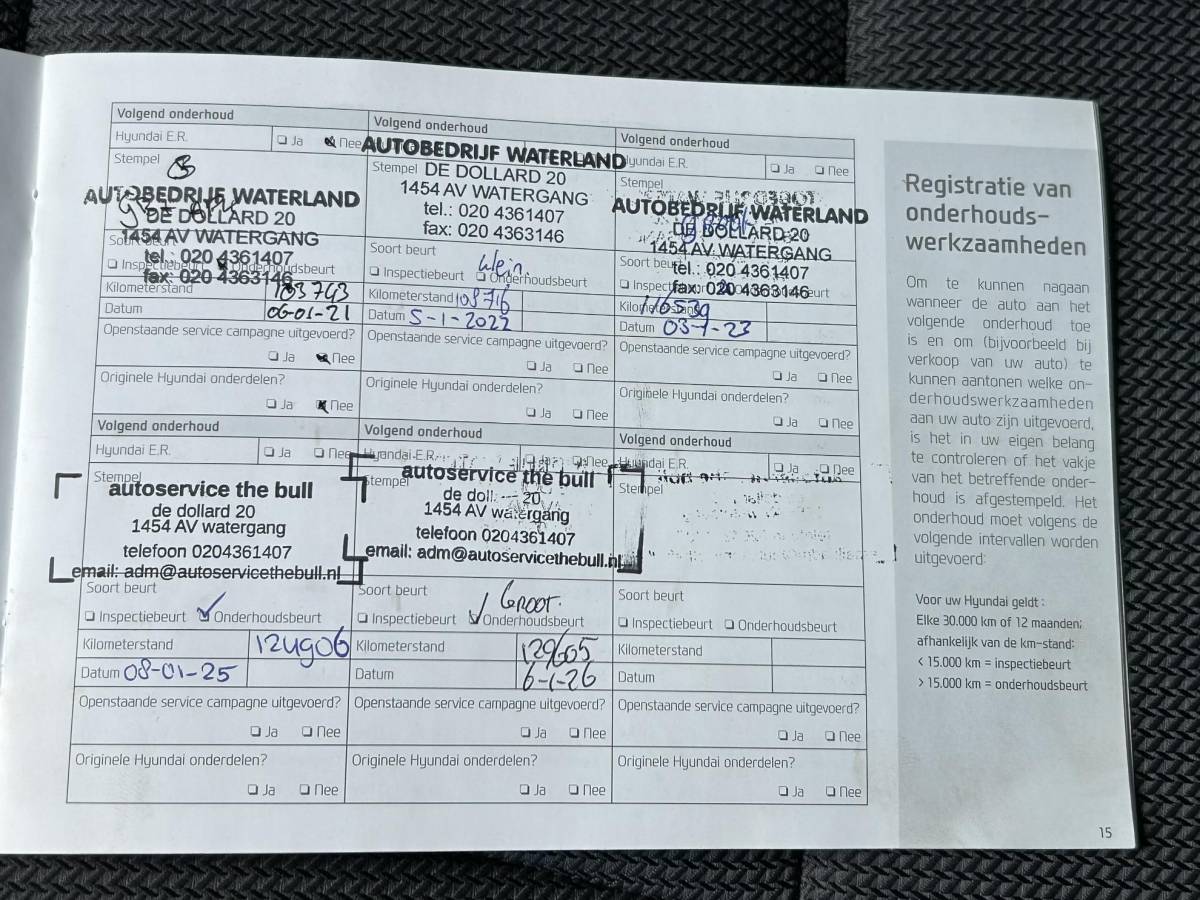 Volgend onderhoud
Hyundai E.R. Ja Nee
Stempel
AUTOBEDRIJF WATERLAND
DE DOLLARD 20
1454 AV WATERGANG
tel.: 020 4361407
fax: 020 4363146
Soort beurt
Inspectiebeurt Onderhoudsbeurt
Kilometerstand 103743
Datum 06-01-21
Openstaande service campagne uitgevoerd?
Ja Nee
Originele Hyundai onderdelen?
Ja Nee
Volgend onderhoud
AUTOBEDRIJF WATERLAND
Stempel DE DOLLARD 20
1454 AV WATERGANG
tel.: 020 4361407
fax: 020 4363146
Soort beurt klein.
Inspectiebeurt Onderhoudsbeurt
Kilometerstand 108716
Datum 5-1-2022
Openstaande service campagne uitgevoerd?
Ja Nee
Originele Hyundai onderdelen?
Ja Nee
Volgend onderhoud
Hyundai E.R. Ja Nee
Stempel
AUTOBEDRIJF WATERLAND
DE DOLLARD 20
1454 AV WATERGANG
Soort beurt
tel.: 020 4361407
fax: 020 4363146
Kilometerstand 116539
Datum 03-1-23
Openstaande service campagne uitgevoerd?
Ja Nee
Originele Hyundai onderdelen?
Ja Nee
Volgend onderhoud
Hyundai E.R. Ja Nee
Stempel
autoservice the bull
de dollard 20
1454 AV watergang
telefoon 0204361407
email: adm@autoservicethebull.nl
Soort beurt
Inspectiebeurt Onderhoudsbeurt
Kilometerstand 124906
Datum 08-01-25
Openstaande service campagne uitgevoerd?
Ja Nee
Originele Hyundai onderdelen?
Ja Nee
Volgend onderhoud
Hyundai E.R. Ja Nee
Stempel
autoservice the bull
de 20
1454 AV watergang
telefoon 0204361407
email: adm@autoservicethebull.nl
Soort beurt Groot.
Inspectiebeurt Onderhoudsbeurt
Kilometerstand 129605
Datum 6-1-26
Openstaande service campagne uitgevoerd?
Ja Nee
Originele Hyundai onderdelen?
Ja Nee
Volgend onderhoud
Hyundai E.R. Ja Nee
Stempel
Soort beurt
Inspectiebeurt Onderhoudsbeurt
Kilometerstand
Datum
Openstaande service campagne uitgevoerd?
Ja Nee
Originele Hyundai onderdelen?
Ja Nee
Registratie van
onderhouds-
werkzaamheden
Om te kunnen nagaan
wanneer de auto aan het
volgende onderhoud toe
is en om (bijvoorbeeld bij
verkoop van uw auto) te
kunnen aantonen welke on-
derhoudswerkzaamheden
aan uw auto zijn uitgevoerd,
is het in uw eigen belang
te controleren of het vakje
van het betreffende onder-
houd is afgestempeld. Het
onderhoud moet volgens de
volgende intervallen worden
uitgevoerd:
Voor uw Hyundai geldt :
Elke 30.000 km of 12 maanden;
afhankelijk van de km-stand:
< 15.000 km = inspectiebeurt
> 15.000 km = onderhoudsbeurt
15